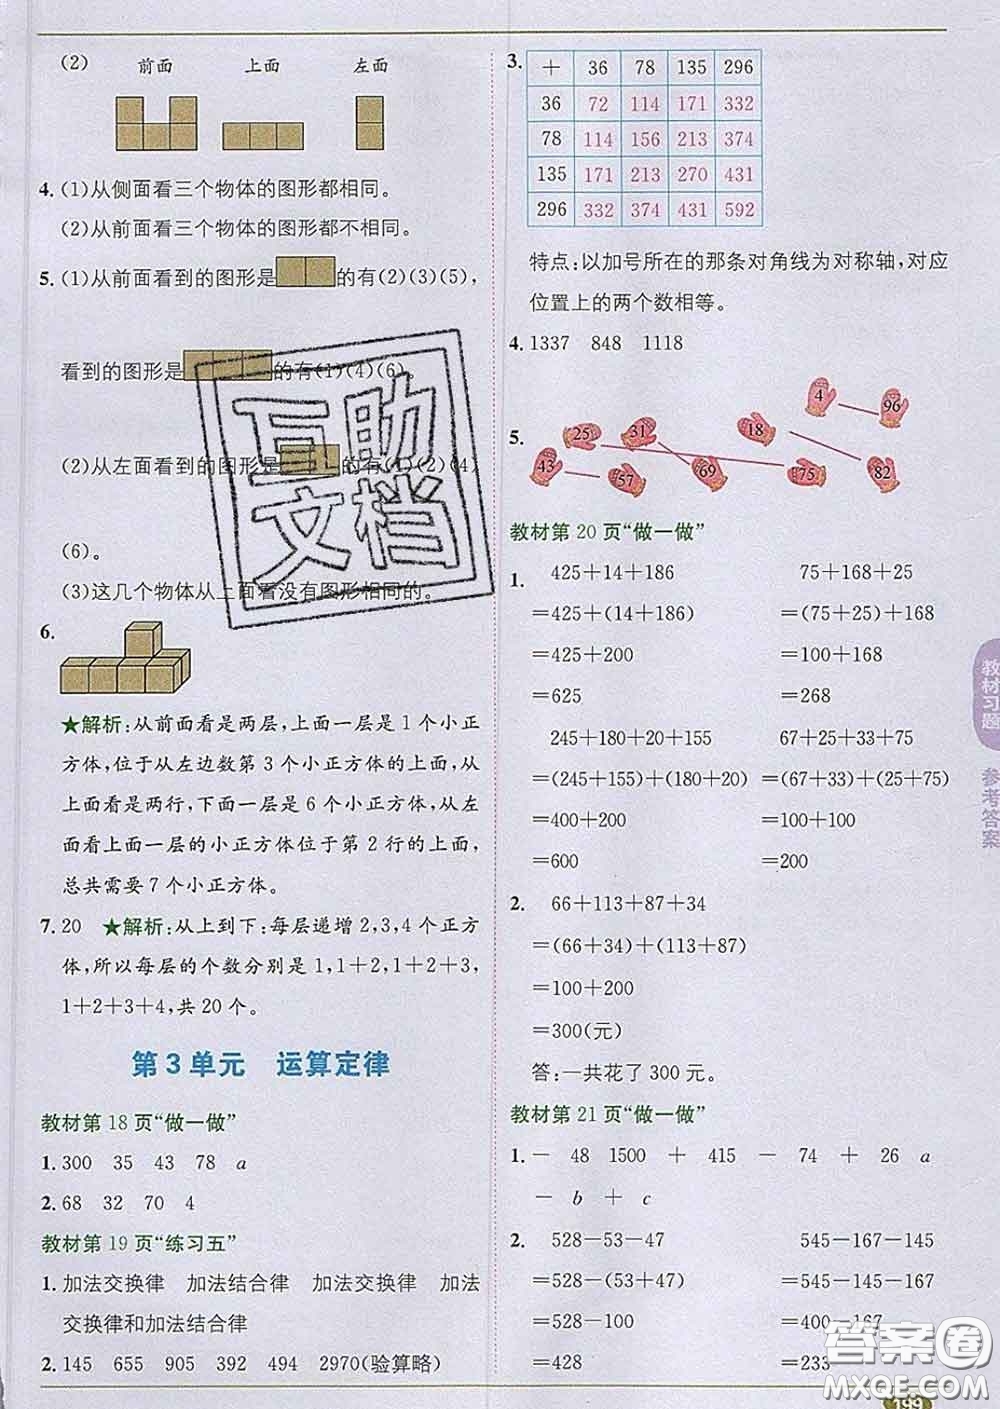 (2) 前面 上面 左面
4. (1)从侧面看三个物体的图形都相同。
(2)从前面看三个物体的图形都不相同。
5. (1)从前面看到的图形是 的有(2)(3)(5),
看到的图形是 的有(1)(4)(6)。
(2)从左面看到的图形是 的有(1)(2)(4)
(6)。
(3)这几个物体从上面看没有图形相同的。
6.
★解析:从前面看是两层,上面一层是 1 个小正
方体,位于从左边数第 3 个小正方体的上面,从
上面看是两行,下面一层是 6 个小正方体,从左
面看上面一层的小正方体位于第 2 行的上面,
总共需要 7 个小正方体。
7. 20 ★解析:从上到下:每层递增 2,3,4 个正方
体,所以每层的个数分别是 1,1+2,1+2+3,
1+2+3+4,共 20 个。
第 3 单元 运算定律
教材第 18 页“做一做”
1. 300 35 43 78 a
2. 68 32 70 4
教材第 19 页“练习五”
1. 加法交换律 加法结合律 加法交换律 加法
交换律和加法结合律
2. 145 655 905 392 494 2970(验算略)
3.
+ 36 78 135 296
36 72 114 171 332
78 114 156 213 374
135 171 213 270 431
296 332 374 431 592
特点:以加号所在的那条对角线为对称轴,对应
位置上的两个数相等。
4. 1337 848 1118
5.
4 96
25 31 18
43 57 69 75 82
教材第 20 页“做一做”
1. 425+14+186 75+168+25
=425+(14+186) =(75+25)+168
=425+200 =100+168
=625 =268
245+180+20+155 67+25+33+75
=(245+155)+(180+20) =(67+33)+(25+75)
=400+200 =100+100
=600 =200
2. 66+113+87+34
=(66+34)+(113+87)
=100+200
=300(元)
答:一共花了 300 元。
教材第 21 页“做一做”
1. － 48 1500 + 415 － 74 + 26 a
－ b + c
2. 528-53-47 545-167-145
=528-(53+47) =545-145-167
=528-100 =400-167
=428 =233
教材习题
参考答案
199
互助
文档
答案圈
MXQE.COM